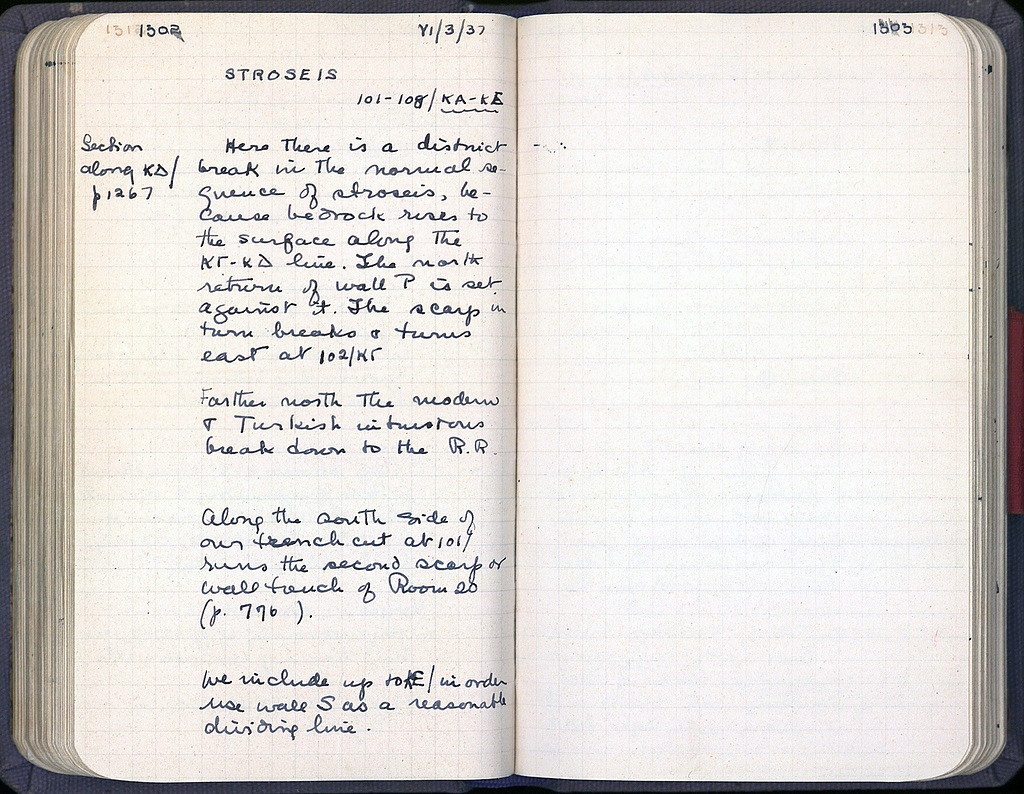 1302
VI/3/37
STROSEIS
101-108/KA-KE
Section
along ΚΔ/
p 1267
Here there is a district
break in the normal se-
quence of stroseis, be-
cause bedrock rises to
the surface along the
ΚΓ-ΚΔ line. The north
return of wall P is set
against it. The scarp in
turn breaks & turns
east at 102/ΚΓ
Farther north the modern
& Turkish intrusions
break down to the R.R.
Along the south side of
our trench cut at 101/
runs the second scarp or
wall trench of Room 20
(p. 776 ).
We include up to KE/ in order
use wall S as a reasonable
dividing line.
1303